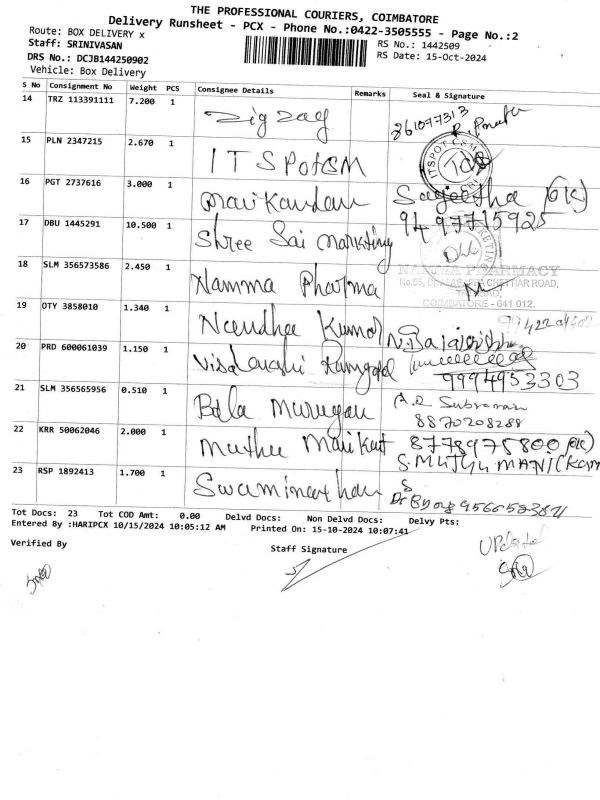 THE PROFESSIONAL COURIERS, COIMBATORE
Delivery Runsheet - PCX - Phone No.:0422-3505555 - Page No.:2
Route: BOX DELIVERY x
RS No.: 1442509
Staff: SRINIVASAN
RS Date: 15-Oct-2024
DRS No.: DCJB144250902
Vehicle: Box Delivery
S No Consignment No Weight PCS Consignee Details Remarks Seal & Signature
14 TRZ 113391111 7.200 1 Zig zag
15 PLN 2347215 2.670 1 ITSPotGSM
16 PGT 2737616 3.000 1 Sageetha (OK)
17 DBU 1445291 10.500 1 Shree Sai Marketing
18 SLM 356573586 2.450 1 Namma Pharma
NAMMA PHARMACY
COIMBATORE - 641 012.
19 OTY 3858010 1.340 1 Nandhee Kumar
20 PRD 600061039 1.150 1
9994953303
21 SLM 356565956 0.510 1 Bala Murugan
8870208288
22 KRR 50062046 2.000 1 Muthu Manikat 8778975800 (OK)
S.MUTHU MANICKAM
23 RSP 1892413 1.700 1 Swaminathan
Tot Docs: 23 Tot COD Amt: 0.00 Delvd Docs: Non Delvd Docs: Delvy Pts:
Entered By :HARIPCX 10/15/2024 10:05:12 AM Printed On: 15-10-2024 10:07:41
Verified By
Staff Signature